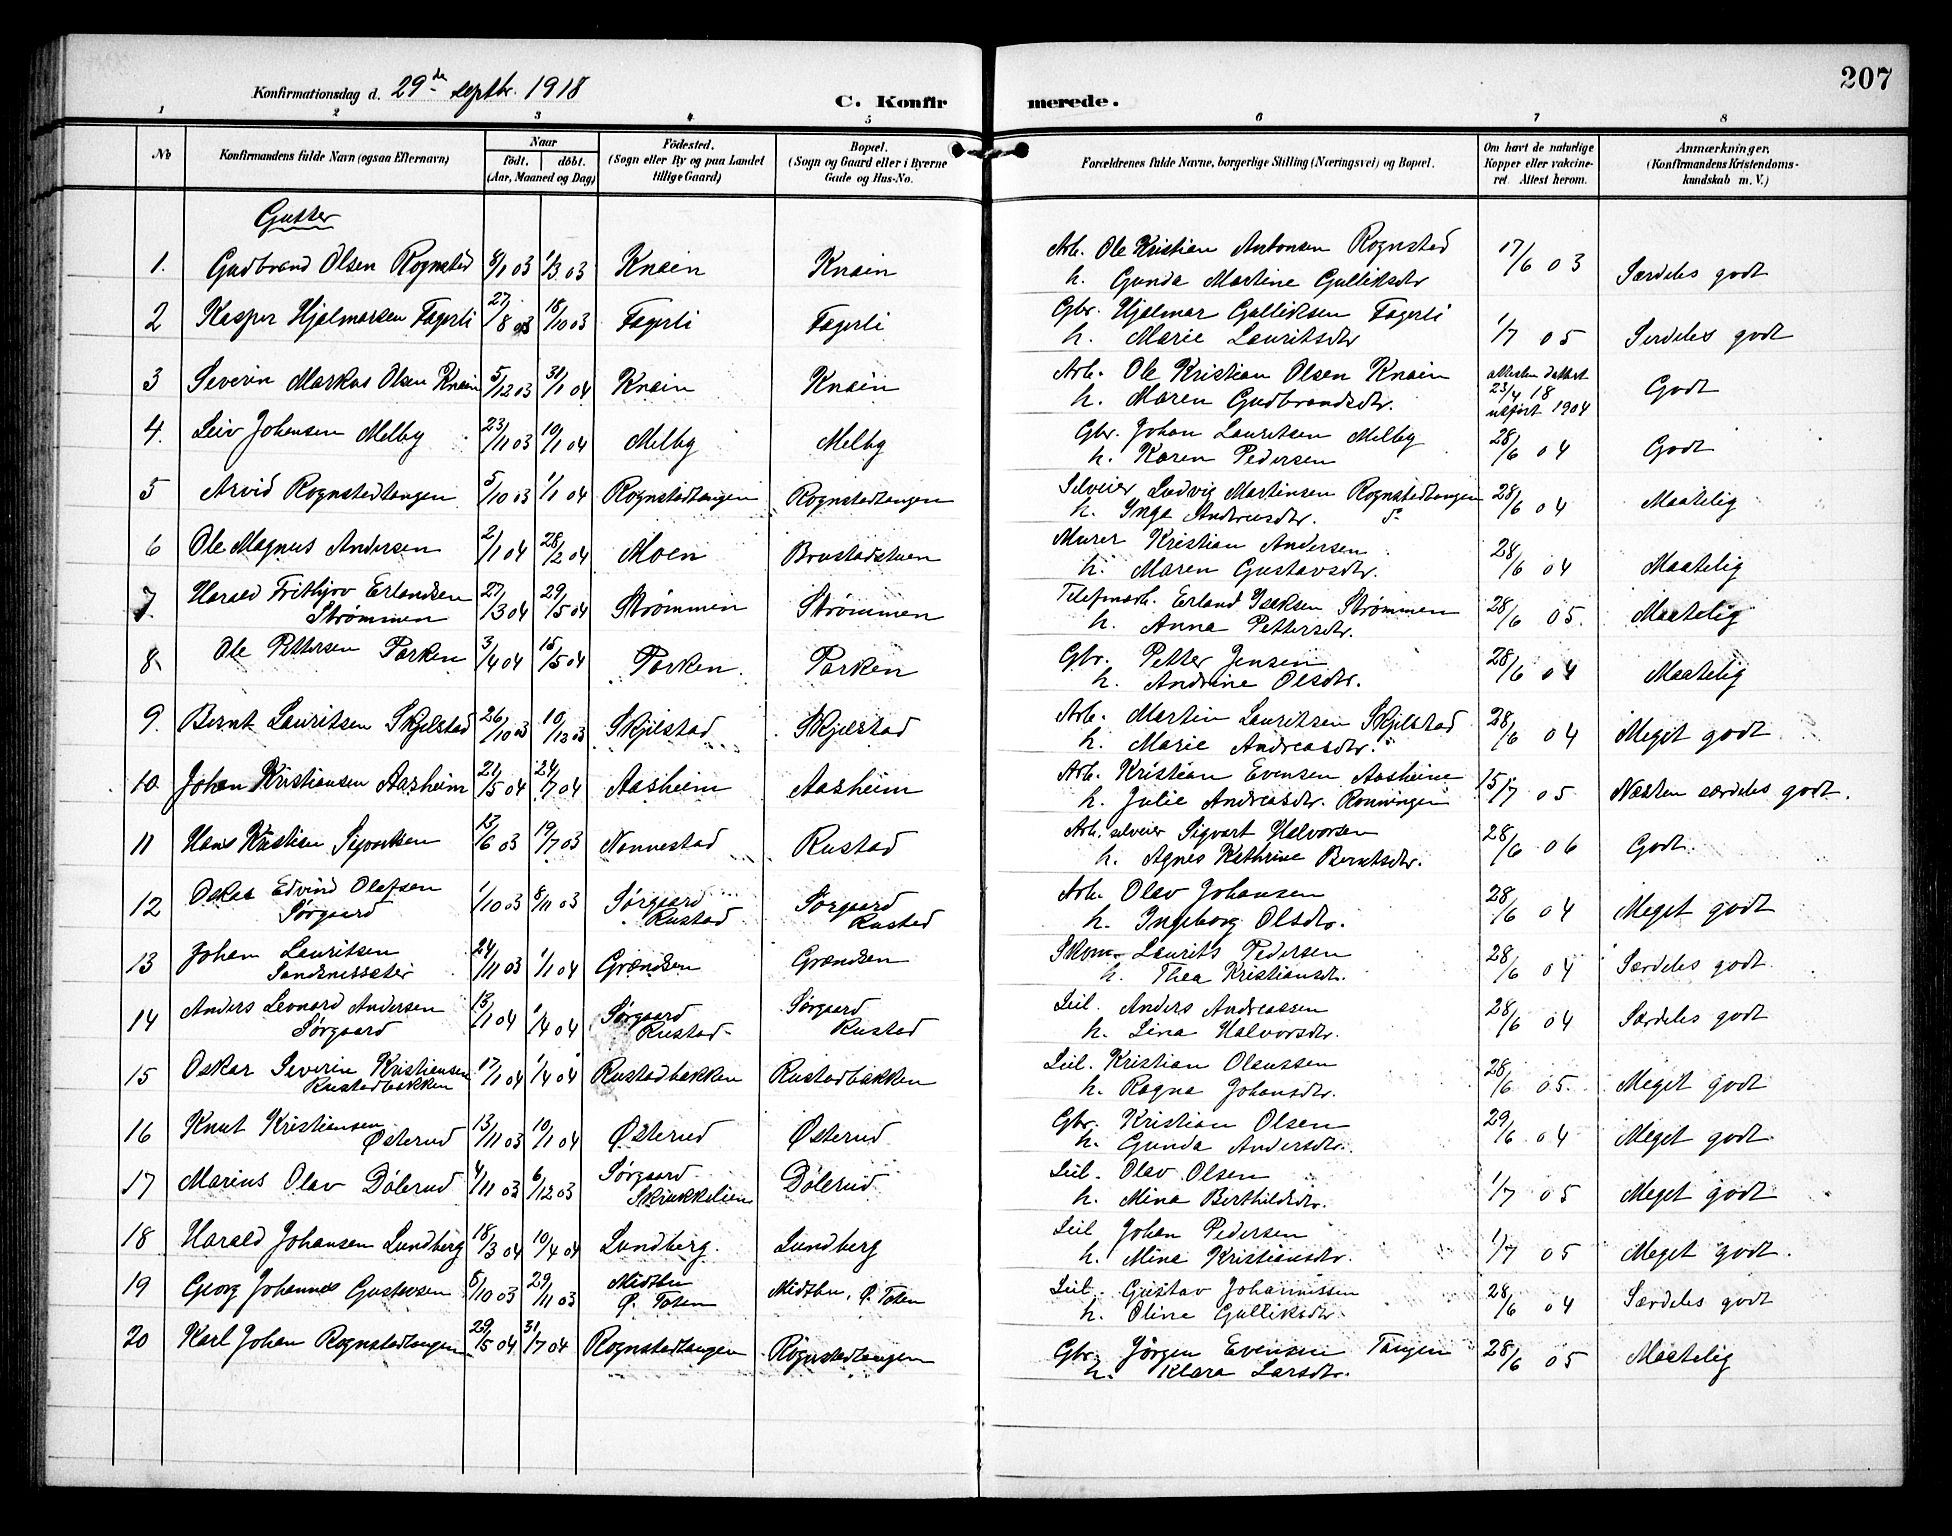 207
Konfirmationsdag d. 29de septbr. 1918
C. Konfirmerede.
1 2 3 4 5 6 7 8
No
Konfirmandens fulde Navn (ogsaa Efternavn)
Naar
födt. döbt.
(Aar, Maaned og Dag)
Födested.
(Sogn eller By og paa Landet
tillige Gaard)
Bopæl.
(Sogn og Gaard eller i Byerne
Gade og Hus-No.
Forældrenes fulde Navne, borgerlige Stilling (Næringsvei) og Bopæl.
Om havt de naturlige
Kopper eller vakcine-
ret. Attest herom.
Anmærkninger,
(Konfirmandens Kristendoms-
kundskab m. V.)
Gutter
1. Gudbrand Olsen Rognstad 8/1 03 1/3 03 Knain Knain Arb. Ole Kristian Antonsen Rognstad 17/6 03 Særdeles godt
h. Gunda Martine Gulliksdtr
2 Kasper Hjalmarsen Fagerli 27/8 03 18/10 03 Fagerli Fagerli Gbr. Hjalmar Gulliksen Fagerli 1/7 05 Serdeles godt
h. Marie Lauritsdtr
3 Severin Markus Olsen Knain 5/12 03 31/1 04 Knain Knain Arb. Ole Kristian Olsen Knain
h. Maren Gudbrandsdtr. 23/4 18 utført 1904 Godt
4. Leiv Johansen Melby 23/11 03 10/1 04 Melby Melby Gbr. Johan Lauritsen Melby 28/6 04 Godt
h. Karen Pedersen
5 Arvid Rognstadtangen 5/10 03 1/1 04 Rognstadtangen Rognstadtangen Selveier Ludvig Martinsen Rognstadtangen 28/6 04 Maatelig
h. Inga Andreasdtr.
6 Ole Magnus Andersen 2/1 04 28/2 04 Moen Brustadstuen Murer Kristian Andersen 28/6 04 Maatelig
h. Maren Gustavsdtr.
7. Harald Frithjov Erlandsen 27/3 04 29/5 04 Strømmen Strømmen Telefmarb. Erland Isaksen Strømmen 28/6 05. Maatelig
Strømmen h. Anna Pettersdtr.
8. Ole Pettersen Parken 3/4 04 15/5 04 Parken. Parken Gbr. Petter Jensen 28/6 04 Maatelig
h. Andrine Olsdtr.
9. Bernt Lauritsen Skjelstad 26/10 03 10/12 03 Skjelstad Skjelstad Arb. Martin Lauritsen Skjelstad 28/6 04 Meget godt
h. Marie Andreasdtr.
10. Johan Kristiansen Aasheim 21/5 04 24/7 04 Aasheim Aasheim Arb. Kristian Evensen Aasheim 15/7 05 Næsten særdeles godt.
h. Julie Andreasdtr. Rønningen
11 Hans Kristian Sigvartsen 13/6 03 19/7 03 Nannestad Rustad Arb. selveier Sigvart Halvorsen 28/6 06 Godt.
h. Agnes Kathrine Berntsdtr.
12 Oskar Edvind Olafsen 1/10 03 8/11 03 Sørgaard Sørgaard Arb. Olav Johansen 28/6 04 Meget godt
Sørgaard Rustad Rustad h. Ingeborg Olsdtr.
13 Johan Lauritsen 24/11 03 1/11 04 Grændsen Grændsen Skom. Laurits Pedersen 28/6 04 Særdeles godt.
Sandnessæter h. Thea Kristiansdt.
14 Anders Leonard Andersen 13/1 04 1/4 04 Sørgaard Sørgaard Leil. Anders Andreassen 28/6 04 Særdeles godt
Sørgaard Rustad Rustad h. Lina Halvorsdtr.
15 Oskar Severin Kristiansen 17/1 04 1/4 04 Rustadbakken Rustadbakken Leil. Kristian Olaussen 28/6 05. Meget godt
Rustadbakken h. Ragna Johansdtr.
16 Knut Kristiansen 13/11 03 10/1 04 Østerud Østerud Gbr. Kristian Olsen 29/6 04 Meget godt
Østerud h. Gunda Andersdtr.
17 Marius Olav Dølerud 4/11 03 6/12 03 Sørgaard Dølerud Leil. Olav Olsen 1/7 05 Meget godt
Skrukkelien h. Mina Berthildsdtr.
18 Harald Johansen Lundberg 18/3 04 10/4 04 Lundberg. Lundberg Leil Johan Pedersen 1/7 05 Meget godt.
h. Mina Kristiansdtr.
19 Georg Johannes Gustavsen 5/10 03 29/11 03 Midtbu Midtbu, Ø. Toten Leil. Gustav Johannissen 28/6 04 Særdeles godt
Ø. Toten h. Oline Gulliksdtr
20 Karl Johan Rognstadtangen 29/5 04 31/7 04 Rognstadtangen Rognstadtangen Gbr. Jørgen Evensen Tangen 28/6 05 Maatelig
h. Klara Larsdtr.